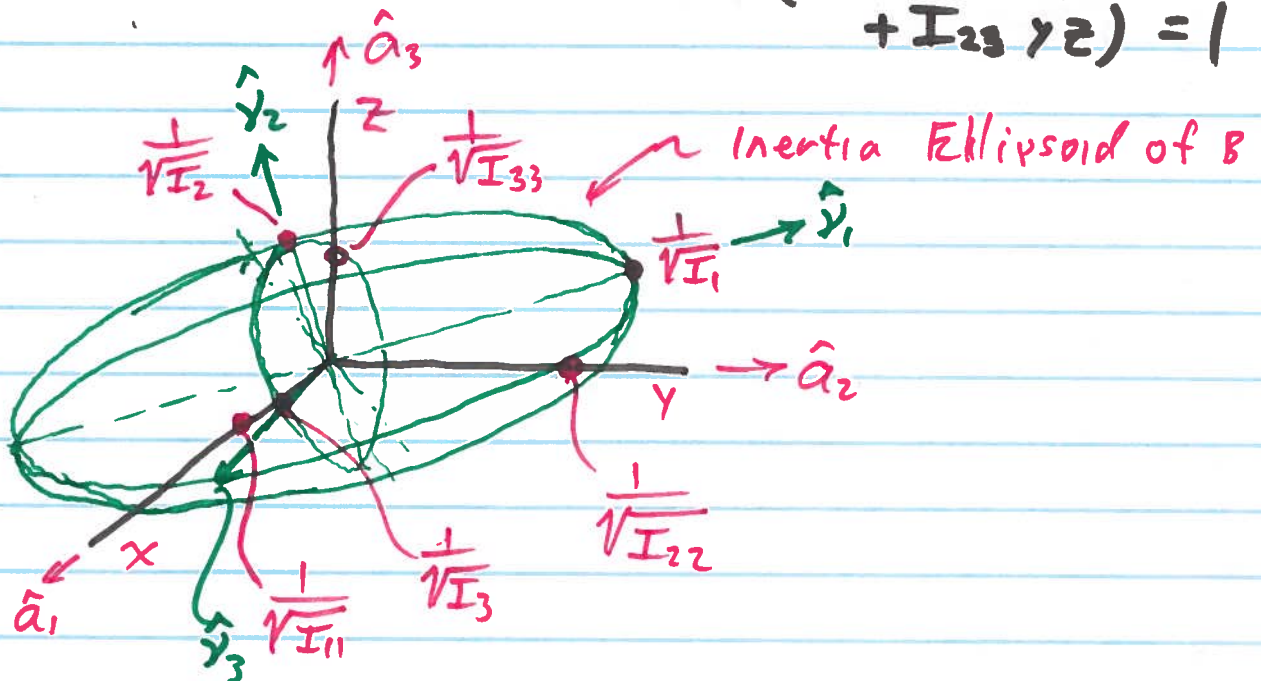 (
+I₂₃ yz) = 1
â₃
ν̂₂
z
1/√I₂
1/√I₃₃
Inertia Ellipsoid of B
1/√I₁
ν̂₁
â₂
y
1/√I₂₂
x
1/√I₃
â₁
1/√I₁₁
ν̂₃